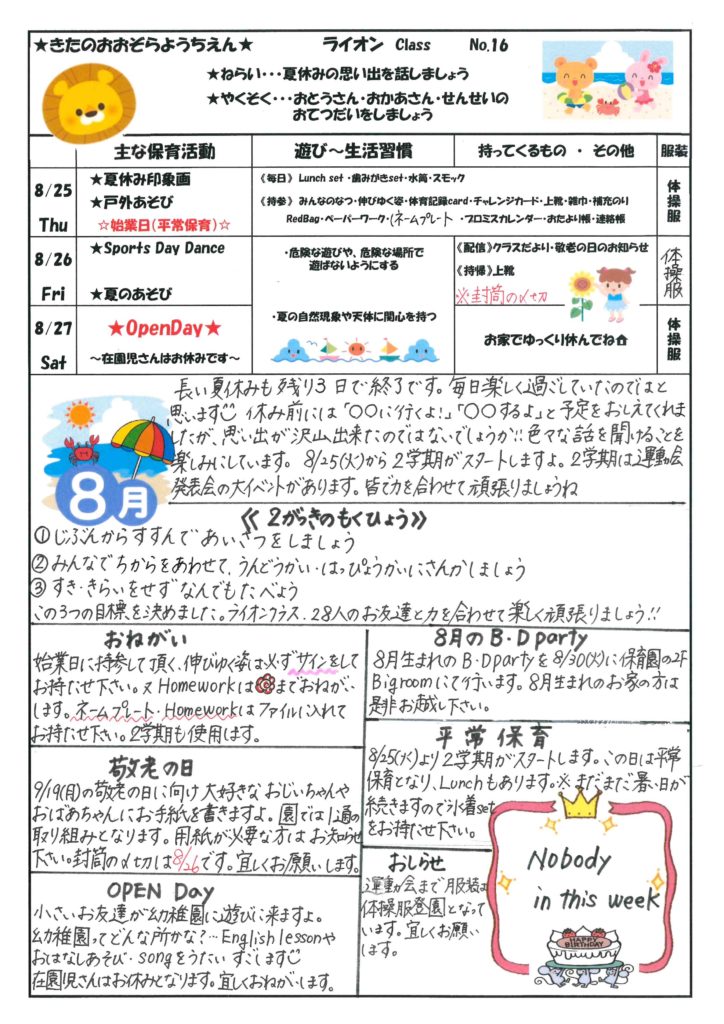 ★きたのおおぞらようちえん★ ライオン Class No.16
★ねらい・・・夏休みの思い出を話しましょう
★やくそく・・・おとうさん・おかあさん・せんせいの
おてつだいをしましょう
主な保育活動 遊び～生活習慣 持ってくるもの ・ その他 服装
8/25
Thu
★夏休み印象画
★戸外あそび
☆始業日(平常保育)☆
《毎日》 Lunch set・歯みがきset・水筒・スモック
《持参》 みんなのなつ・伸びゆく姿・体育記録card・チャレンジカード・上靴・雑巾・補充のり
RedBag・ペーパーワーク・(ネームプレート ・プロミスカレンダー・おたより帳・連絡帳
体操服
8/26
Fri
★Sports Day Dance
★夏のあそび
・危険な遊びや、危険な場所で
遊ばないようにする
・夏の自然現象や天体に関心を持つ
《配信》クラスだより・敬老の日のお知らせ
《持帰》上靴
※封筒の〆切
体操服
8/27
Sat
★OpenDay★
～在園児さんはお休みです～
お家でゆっくり休んでね
体操服
8月
長い夏休みも残り3日で終了です。毎日楽しく過ごしていたのではと
思います 休み前には「〇〇に行くよ!」「〇〇するよ」と予定をおしえてくれま
したが、思い出が沢山出来たのではないでしょうか!!色々な話を聞けることを
楽しみにしています。 8/25(火)から2学期がスタートしますよ。2学期は運動会
発表会の大イベントがあります。皆で力を合わせて頑張りましょうね
《 2がっきのもくひょう》
①じぶんからすすんで あいさつをしましょう
②みんなでちからをあわせて、うんどうかい・はっぴょうかいにさんかしましょう
③すき・きらいをせず なんでもたべよう
この3つの目標を決めました。ライオンクラス、28人のお友達と力を合わせて楽しく頑張りましょう!!
おねがい
始業日に持参して頂く、伸びゆく姿は必ずサインをして
お持たせ下さい。又Homeworkは までおねがい
します。ネームプレート・Homeworkはファイルに入れて
お持たせ下さい。2学期も使用します。
8月のB・Dparty
8月生まれのB・Dpartyを8/30(火)に保育園の2F
Bigroomにて行います。8月生まれのお家の方は
是非お越し下さい。
敬老の日
9/19(月)の敬老の日に向け大好きなおじいちゃんや
おばあちゃんにお手紙を書きますよ。園では1通の
取り組みとなります。用紙が必要な方はお知らせ
下さい。封筒の〆切は8/26です。宜しくお願いします。
平常保育
8/25(火)より2学期がスタートします。この日は平常
保育となり、Lunchもあります。※まだまだ暑い日が
続きますので氷着set
をお持たせ下さい。
OPEN Day
小さいお友達が幼稚園に遊びに来ますよ。
幼稚園ってどんな所かな?…English lessonや
おはなしあそび・songをうたいすごします
在園児さんはお休みとなります。宜しくおねがいします。
おしらせ
運動会まで服装は
体操服登園となって
います。宜しくお願い
します。
Nobody
in this week
HAPPY
BIRTHDAY